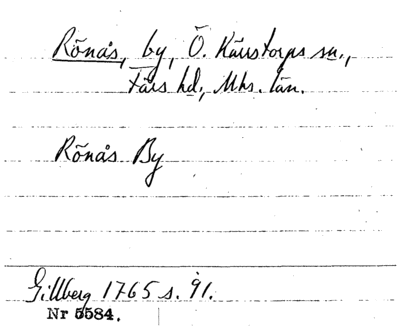 Rönås, by, Ö. Kärrstorps sn.,
Färs hd., Mhs. län.
Rönås By
Gillberg 1765 s. 91.
Nr 5584.